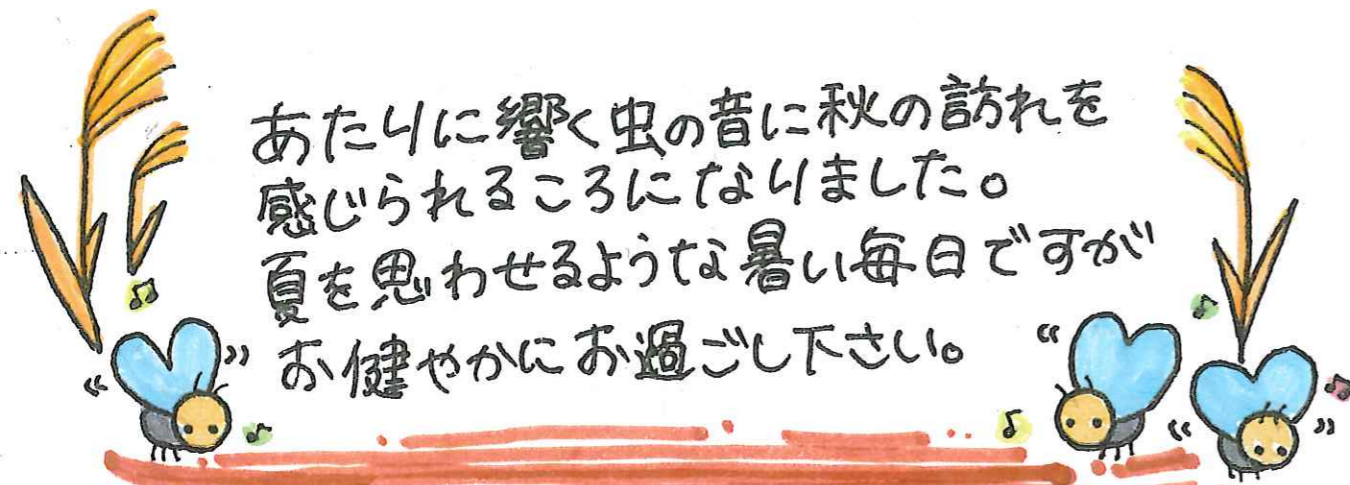 あたりに響く虫の音に秋の訪れを
感じられるころになりました。
夏を思わせるような暑い毎日ですが
お健やかにお過ごし下さい。